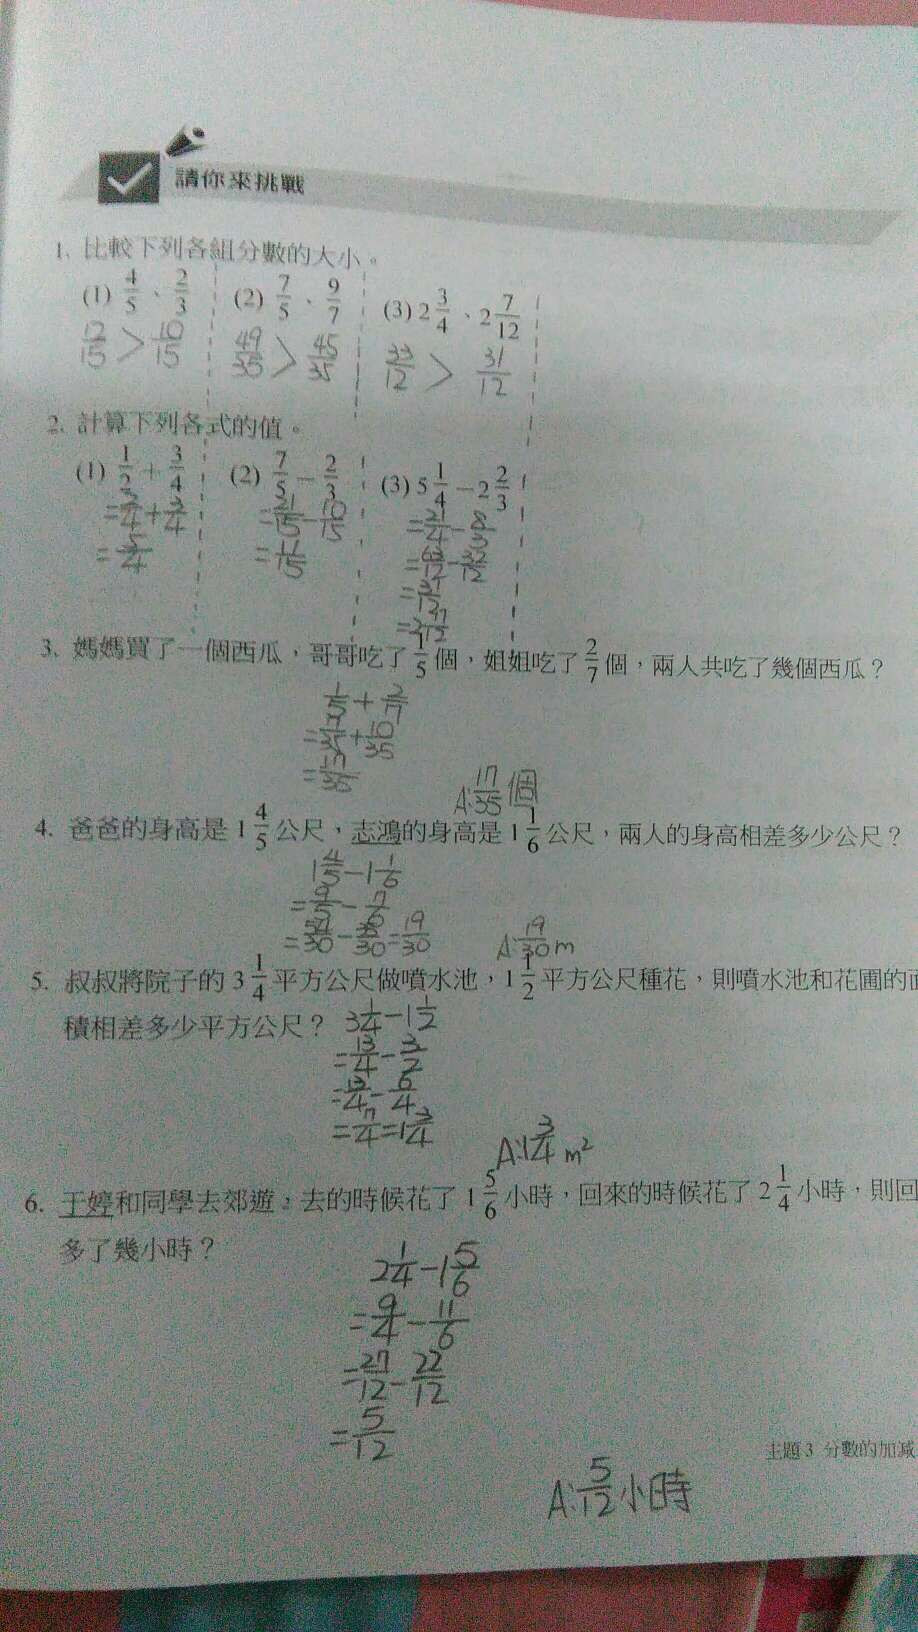 請你來挑戰
1. 比較下列各組分數的大小。
(1) 4/5、2/3 (2) 7/5、9/7 (3) 2 3/4、2 7/12
12/15 > 10/15 49/35 > 45/35 33/12 > 31/12
2. 計算下列各式的值。
(1) 1/2 + 3/4 (2) 7/5 - 2/3 (3) 5 1/4 - 2 2/3
= 2/4 + 3/4 = 21/15 - 10/15 = 21/4 - 8/3
= 5/4 = 11/15 = 63/12 - 32/12
= 31/12
3. 媽媽買了一個西瓜，哥哥吃了 1/5 個，姐姐吃了 2/7 個，兩人共吃了幾個西瓜？
1/5 + 2/7
= 7/35 + 10/35
= 17/35
A: 17/35 個
4. 爸爸的身高是 1 4/5 公尺，志鴻的身高是 1 1/6 公尺，兩人的身高相差多少公尺？
1 4/5 - 1 1/6
= 9/5 - 7/6
= 54/30 - 35/30 = 19/30
A: 19/30 m
5. 叔叔將院子的 3 1/4 平方公尺做噴水池，1 1/2 平方公尺種花，則噴水池和花圃的面
積相差多少平方公尺？
3 1/4 - 1 1/2
= 13/4 - 3/2
= 13/4 - 6/4
= 7/4 = 1 3/4
A: 1 3/4 m²
6. 于婷和同學去郊遊，去的時候花了 1 5/6 小時，回來的時候花了 2 1/4 小時，則回
多了幾小時？
2 1/4 - 1 5/6
= 9/4 - 11/6
= 27/12 - 22/12
= 5/12
A: 5/12 小時
主題 3 分數的加減